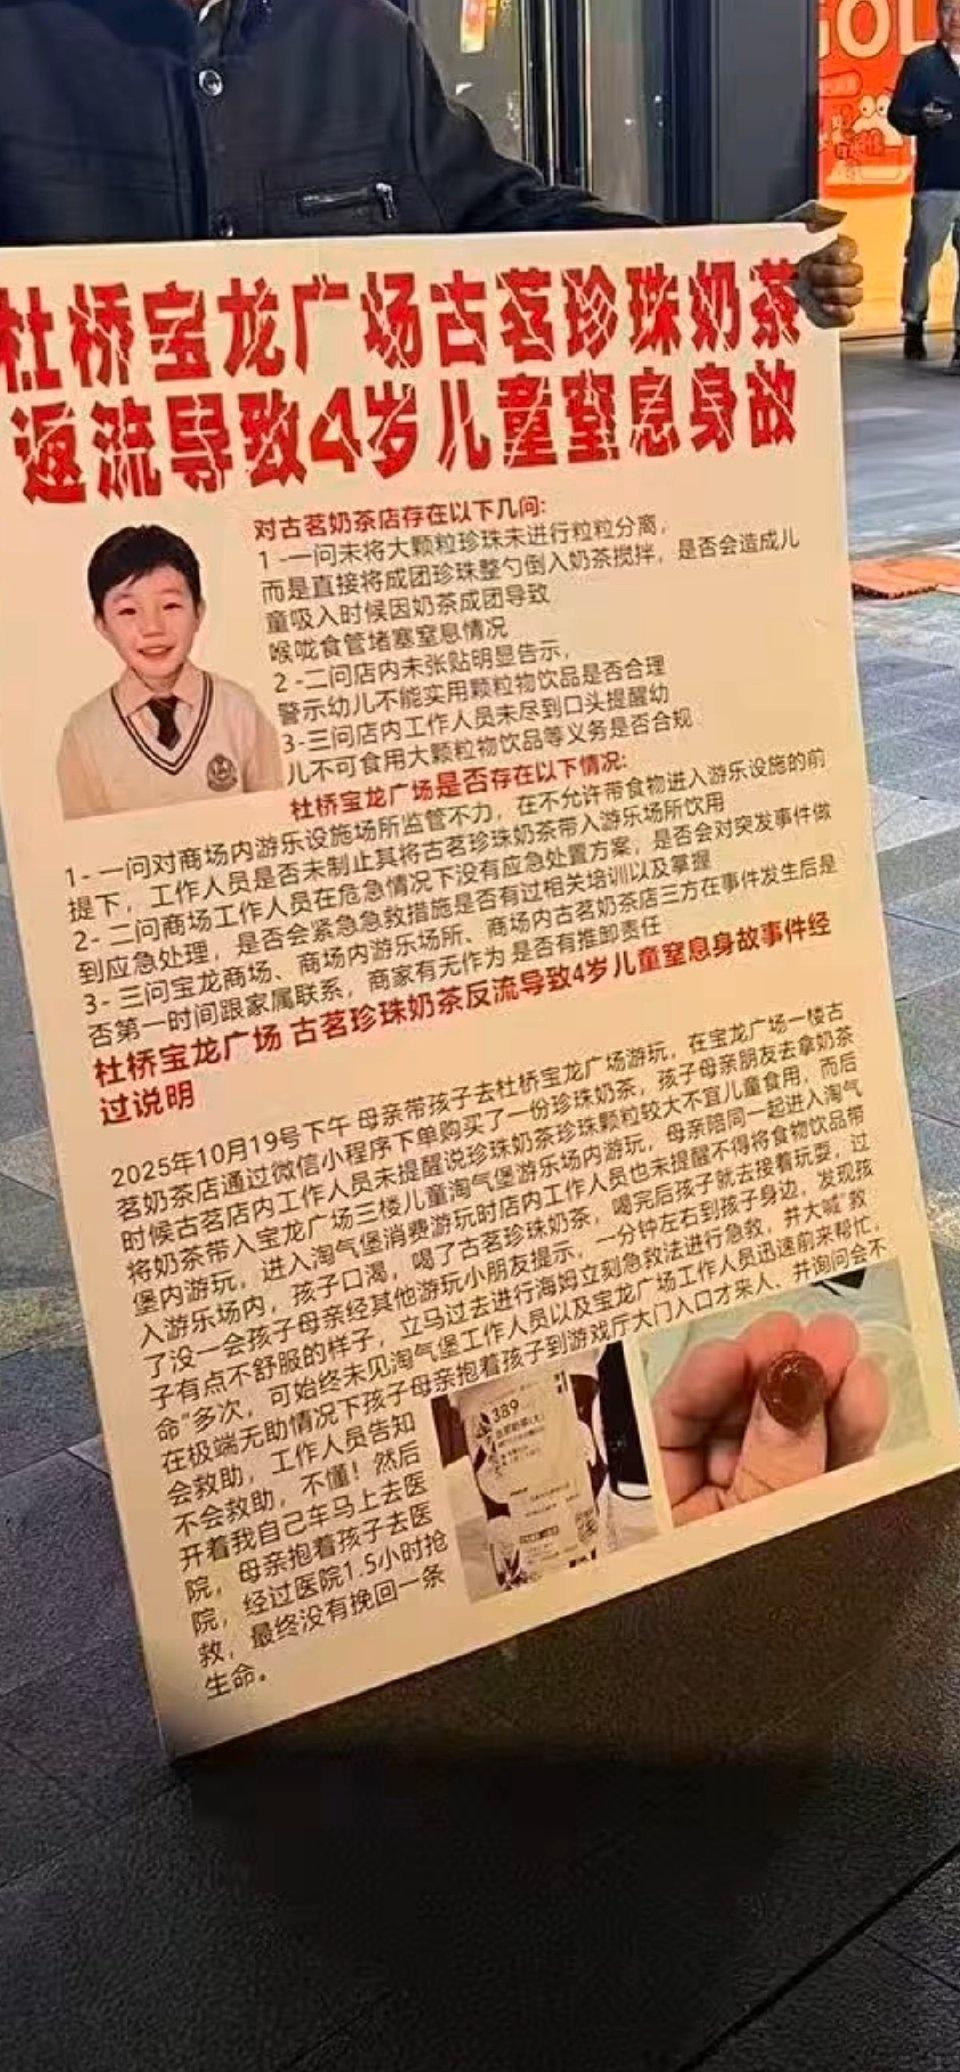 杜桥宝龙广场古茗珍珠奶茶
返流导致4岁儿童窒息身故
对古茗奶茶店存在以下几问:
1-一问未将大颗粒珍珠未进行粒粒分离,
而是直接将成团珍珠整勺倒入奶茶搅拌,是否会造成儿
童吸入时候因奶茶成团导致
喉咙食管堵塞窒息情况
2-二问店内未张贴明显告示,
警示幼儿不能实用颗粒物饮品是否合理
3-三问店内工作人员未尽到口头提醒幼
儿不可食用大颗粒物饮品等义务是否合规
杜桥宝龙广场是否存在以下情况:
1-一问对商场内游乐设施场所监管不力,在不允许带食物进入游乐设施的前
提下,工作人员是否未制止其将古茗珍珠奶茶带入游乐场所饮用
2-二问商场工作人员在危急情况下没有应急处置方案,是否会对突发事件做
到应急处理,是否会紧急急救措施是否有过相关培训以及掌握
3-三问宝龙商场、商场内游乐场所、商场内古茗奶茶店三方在事件发生后是
否第一时间跟家属联系,商家有无作为 是否有推卸责任
杜桥宝龙广场 古茗珍珠奶茶反流导致4岁儿童窒息身故事件经
过说明
2025年10月19号下午 母亲带孩子去杜桥宝龙广场游玩,在宝龙广场一楼古
茗奶茶店通过微信小程序下单购买了一份珍珠奶茶,孩子母亲朋友去拿奶茶
时候古茗店内工作人员未提醒说珍珠奶茶珍珠颗粒较大不宜儿童食用,而后
将奶茶带入宝龙广场三楼儿童淘气堡游乐场内游玩,母亲陪同一起进入淘气
堡内游玩,进入淘气堡消费游玩时店内工作人员也未提醒不得将食物饮品带
入游乐场内,孩子口渴,喝了古茗珍珠奶茶,喝完后孩子就去接着玩耍,过
了没一会孩子母亲经其他游玩小朋友提示,一分钟左右到孩子身边,发现孩
子有点不舒服的样子,立马过去进行海姆立刻急救法进行急救,并大喊"救
命"多次,可始终未见淘气堡工作人员以及宝龙广场工作人员迅速前来帮忙,
在极端无助情况下孩子母亲抱着孩子到游戏厅大门入口才来人、并询问会不
会救助,工作人员告知
不会救助,不懂!然后
开着我自己车马上去医
院,母亲抱着孩子去医
院,经过医院1.5小时抢
救,最终没有挽回一条
生命。
389